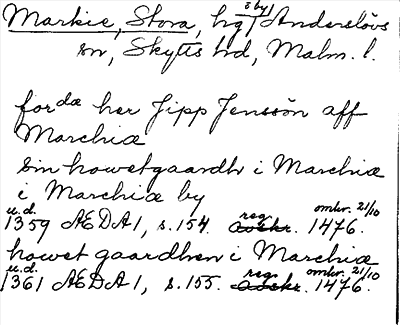 Markie, Stora, hg i by Anderslövs
sn, Skytts hd, Malm. l.
fordæ her Jipp Jenssön aff
Marchiæ
sin howetgaardh i Marchiæ
i Marchiæ by
u.d. reg. omkr. 21/10
1359 ÆDA 1, s. 154. avskr. 1476.
howet gaardhen i Marchiæ
u.d. reg. omkr. 21/10
1361 ÆDA 1, s. 155. avskr. 1476.